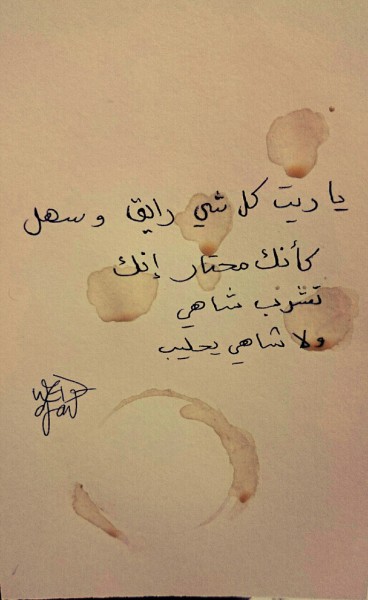 يا ريت كل شي رايق و سهل
كأنك محتار إنك
تشرب شاهي
ولا شاهي بحليب